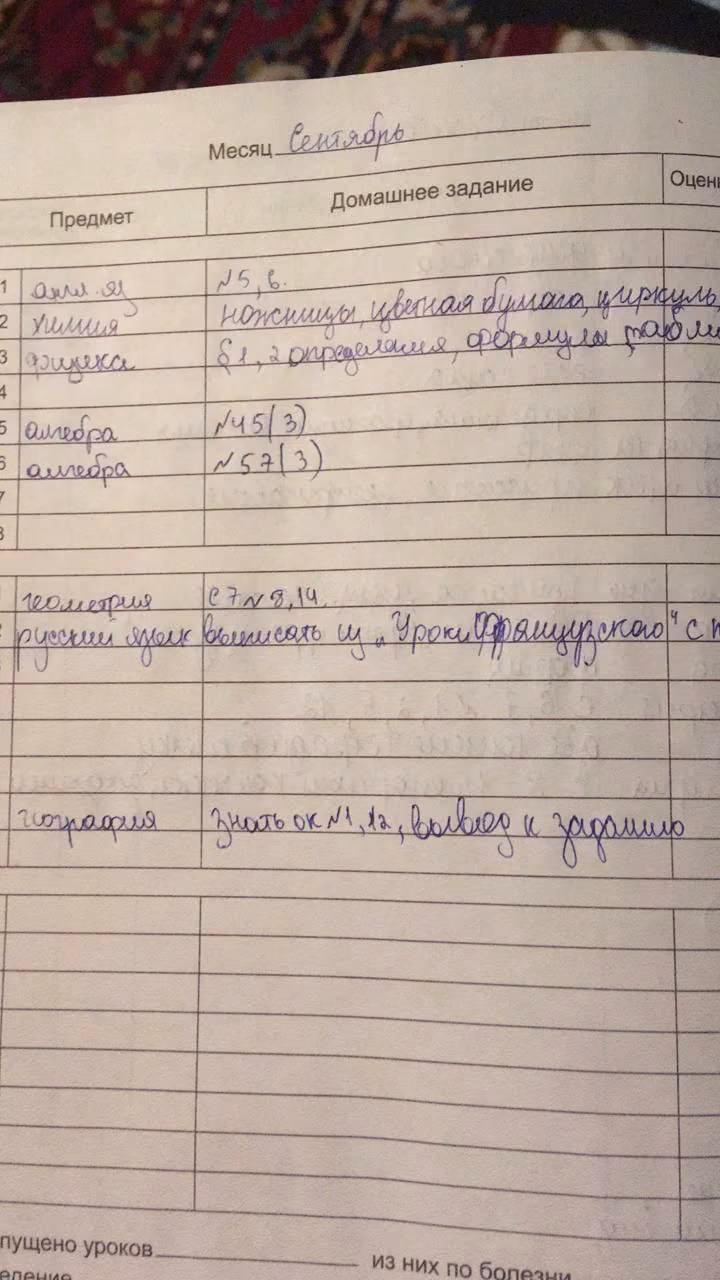 Месяц Сентябрь
Предмет Домашнее задание Оцен
1 англ. яз №5, 6.
2 химия ножницы, цветная бумага, циркуль,
3 физика § 1, 2 определения, формулы, табли
4
5 алгебра №45(3)
6 алгебра №57(3)
7
8
геометрия с 7 №8, 14.
русский язык выписать из „Уроки Французского" с
география знать ок №1, 12, вывод к заданию
пущено уроков из них по болезни
еление